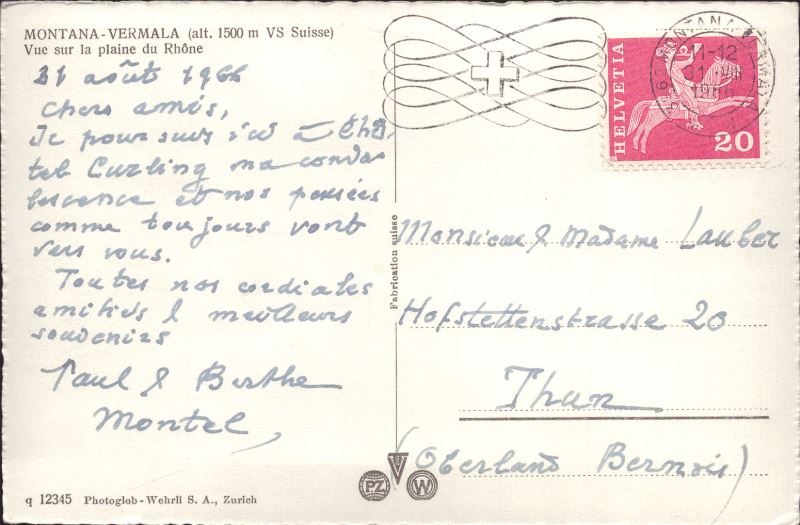 MONTANA-VERMALA (alt. 1500 m VS Suisse)
Vue sur la plaine du Rhône
31 août 1966
Chers amis,
Je poursuis ici à l'Hô
tel Curling ma conva
lescence et nos pensées
comme toujours vont
vers vous.
Toutes nos cordiales
amitiés & meilleurs
souvenirs
Paul & Berthe
Montel,
q 12345 Photoglob-Wehrli S. A., Zurich
Fabrication suisse
PZ
W
MONTANA-VERMALA
11-12
31 VIII
1966
HELVETIA
20
Monsieur & Madame Lauber
Hofstettenstrasse 20
Thun
(Oberland Bernois)